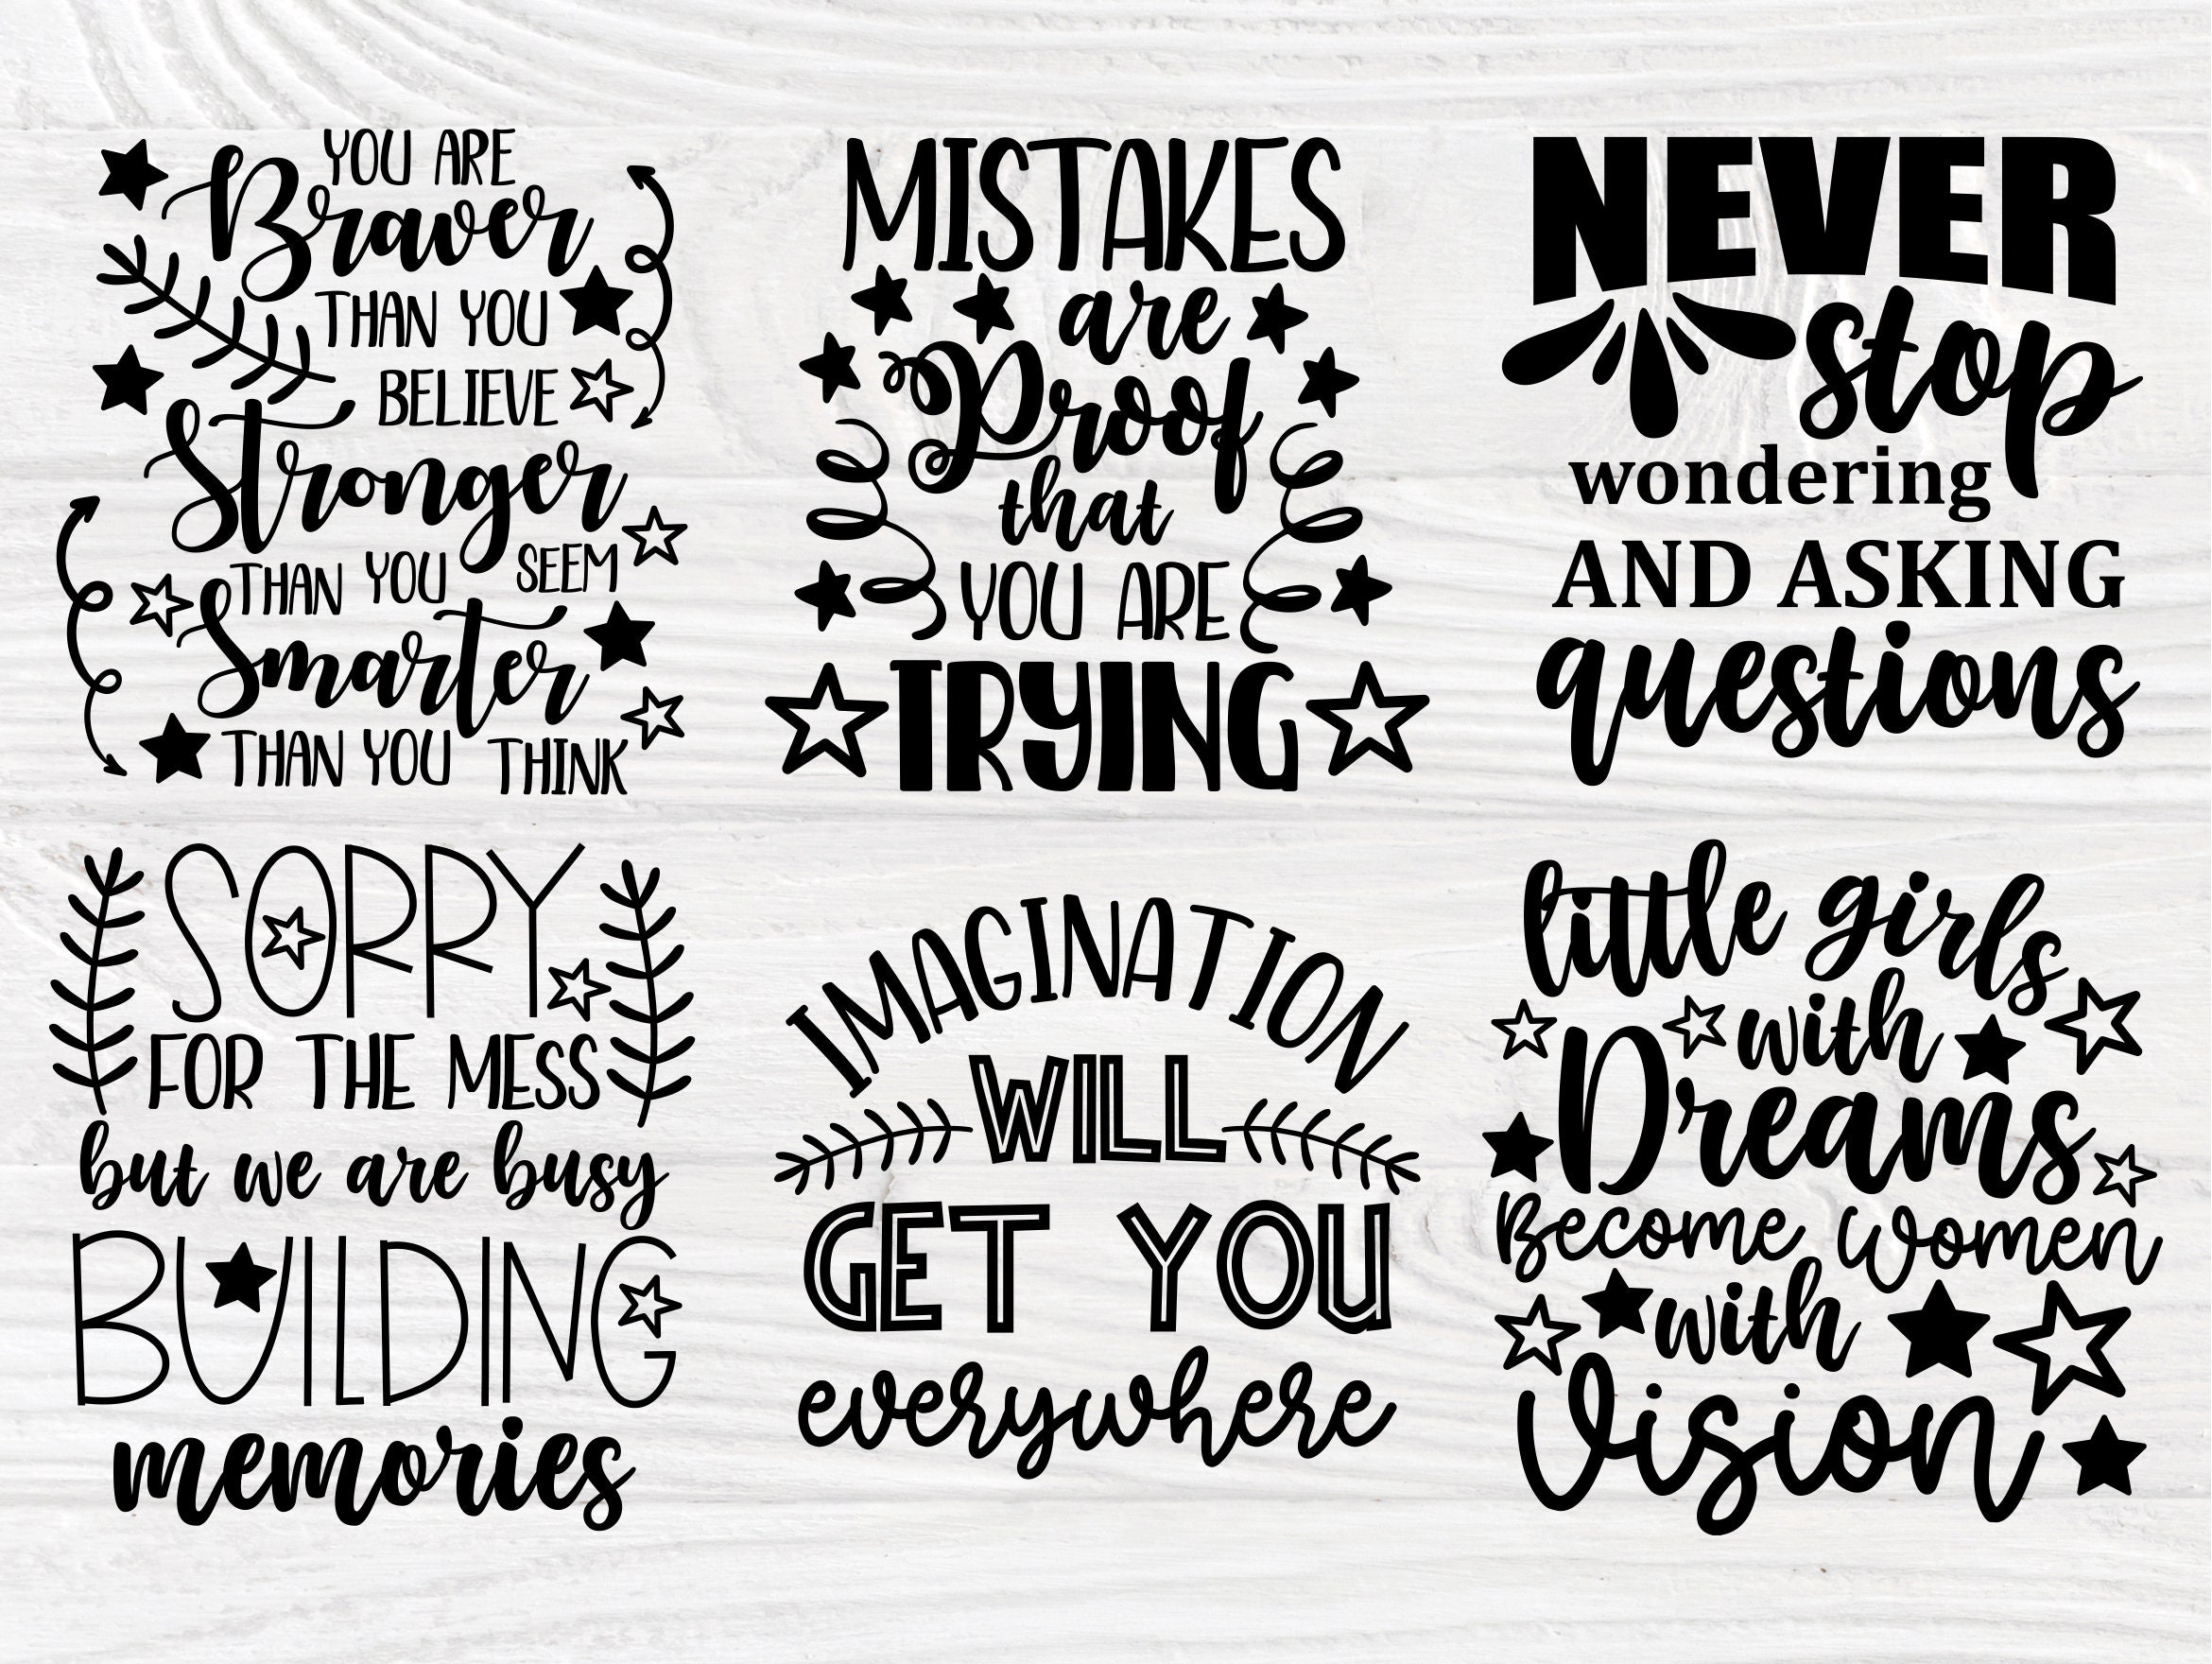 YOU ARE
Braver
THAN YOU
BELIEVE
Stronger
THAN YOU SEEM
Smarter
THAN YOU THINK
MISTAKES
are
Proof
that
YOU ARE
TRYING
NEVER
stop
wondering
AND ASKING
questions
SORRY
FOR THE MESS
but we are busy
BUILDING
memories
IMAGINATION
WILL
GET YOU
everywhere
little girls
with
Dreams
Become Women
with
Vision